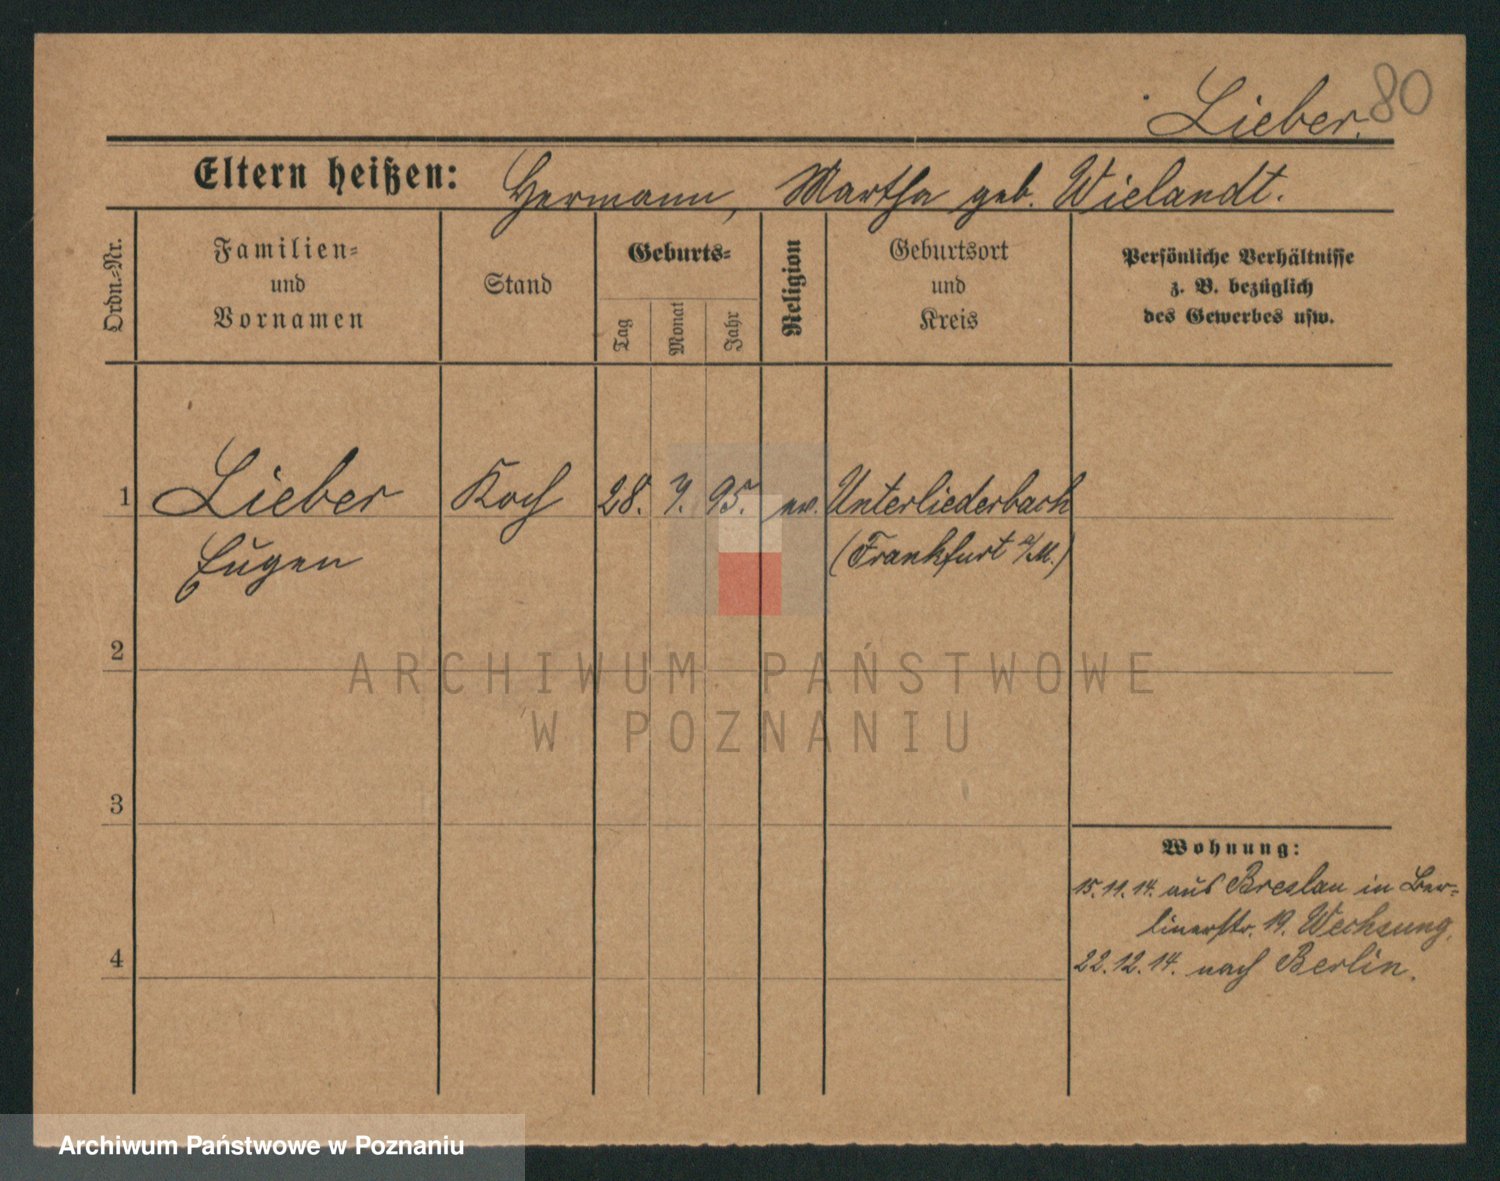 Lieber. 80
Eltern heißen: Hermann, Martha geb. Wielandt.
Ordn.-Nr.
Familien-
und
Vornamen
Stand
Geburts-
Tag
Monat
Jahr
Religion
Geburtsort
und
Kreis
Persönliche Verhältnisse
z. B. bezüglich
des Gewerbes usw.
1 Lieber Koch 28. 7. 95. ev. Unterliederbach
Eugen (Frankfurt a/M.)
2
ARCHIWUM PAŃSTWOWE
W POZNANIU
3
Wohnung:
15.11.14. aus Breslau in Ber-
linerstr. 19. Wechsung.
4 22.12.14. nach Berlin.
Archiwum Państwowe w Poznaniu